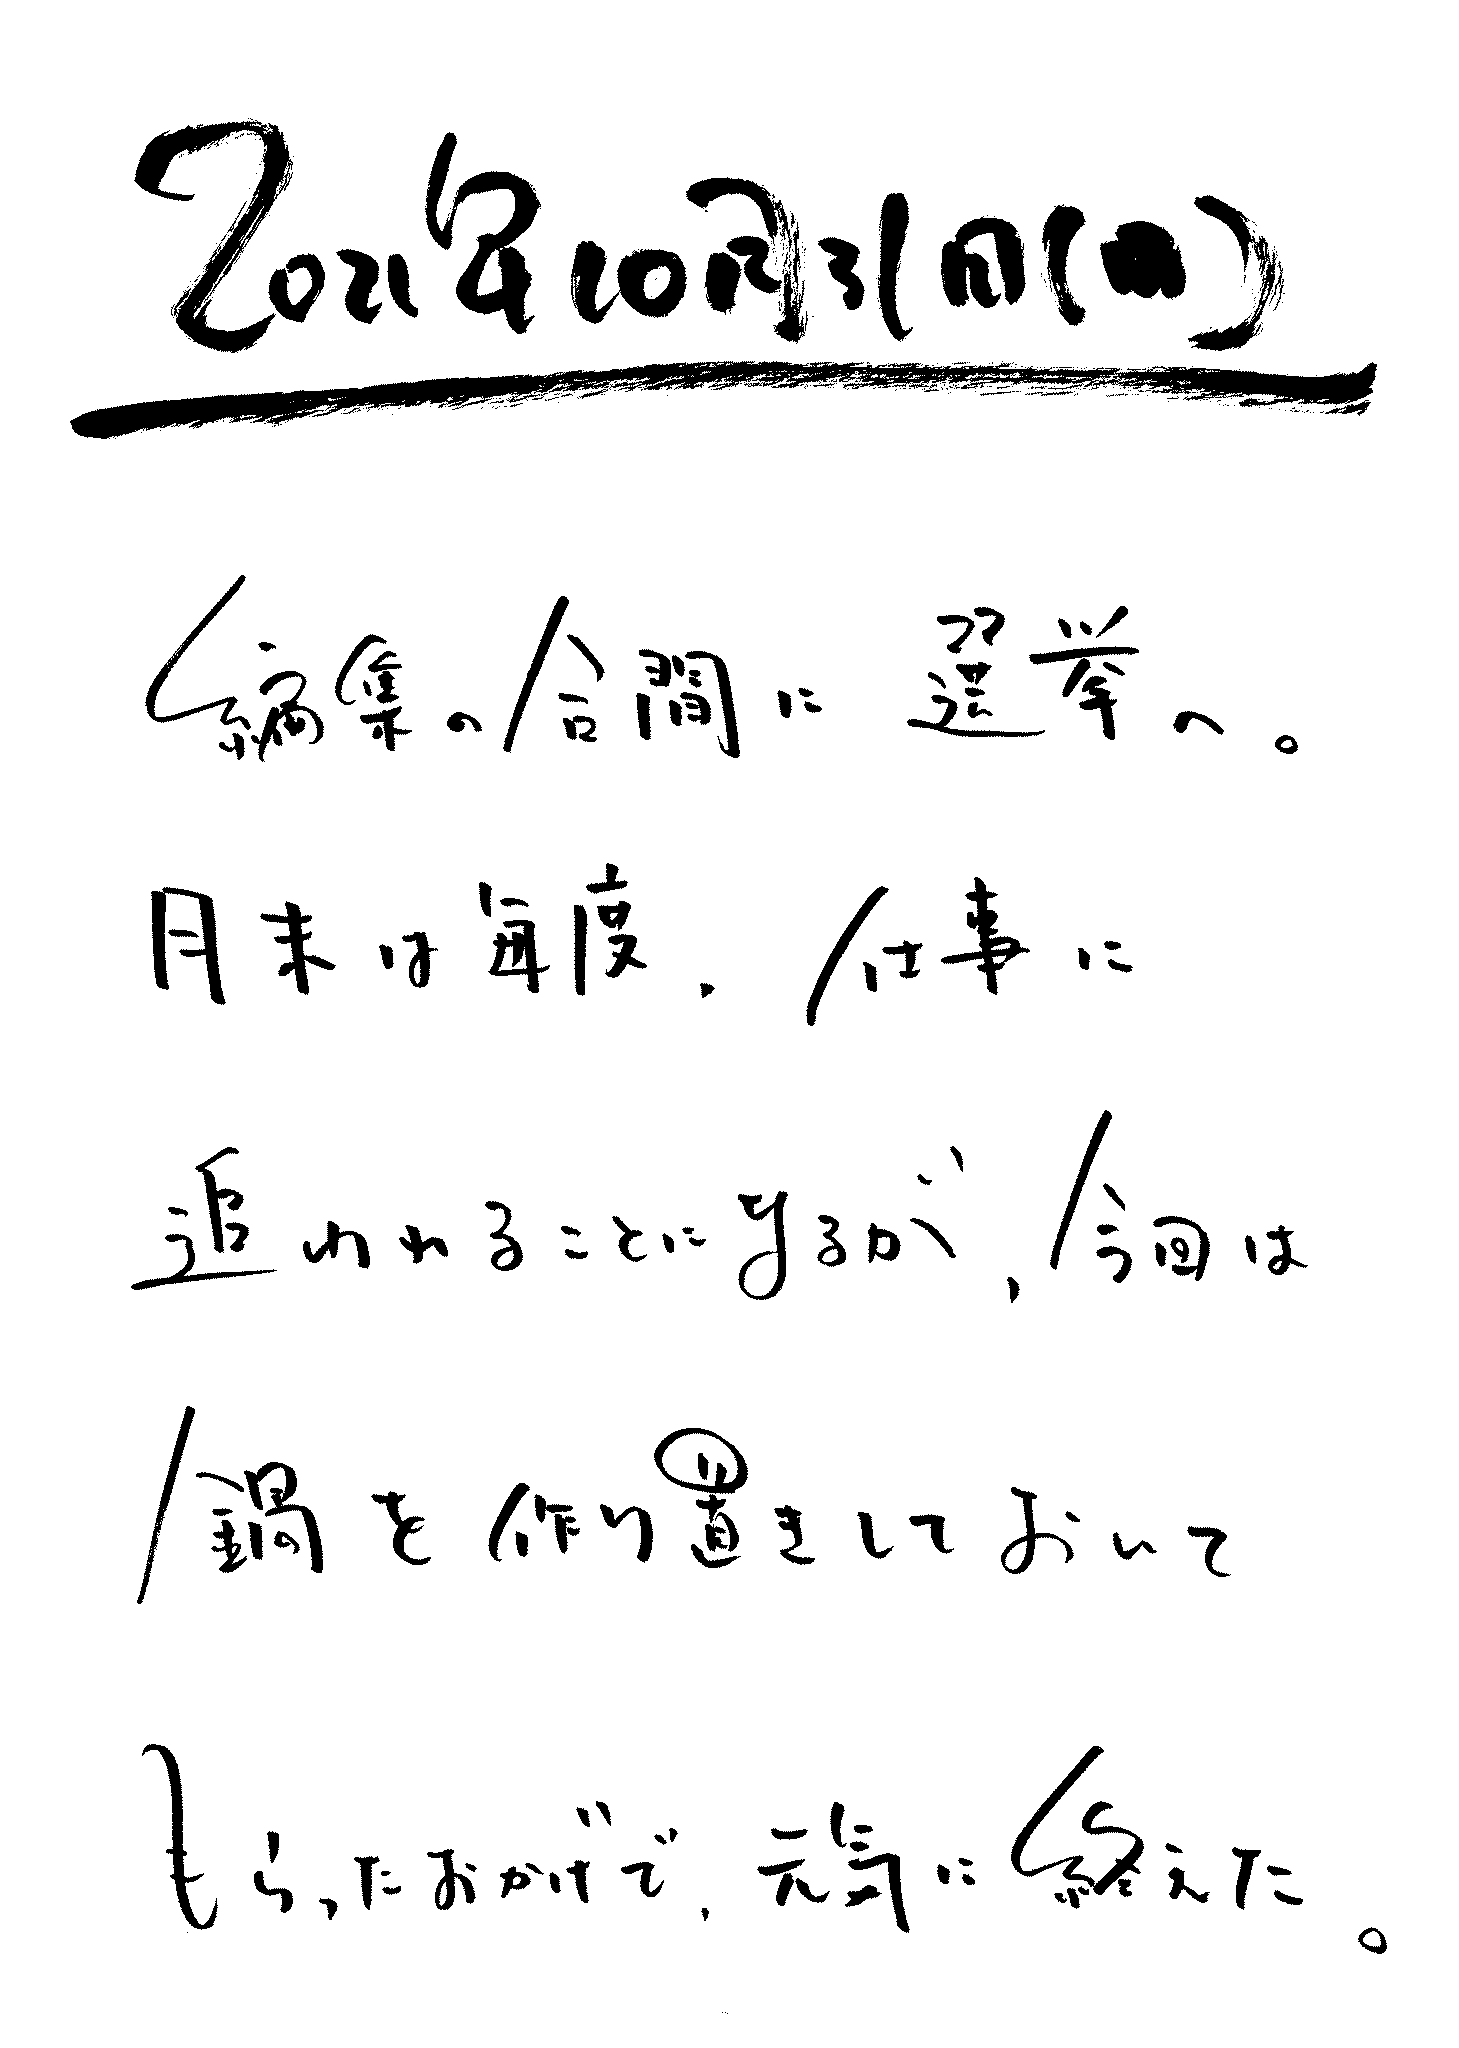 2021年10月31日(日)
編集の合間に選挙へ。
月末は毎度、仕事に
追われることになるが、今回は
鍋を作り置きしておいて
もらったおかげで、元気に終えた。